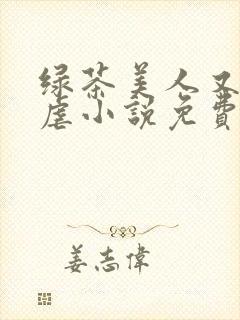 绿茶美人又
虐小說免費
姜志偉